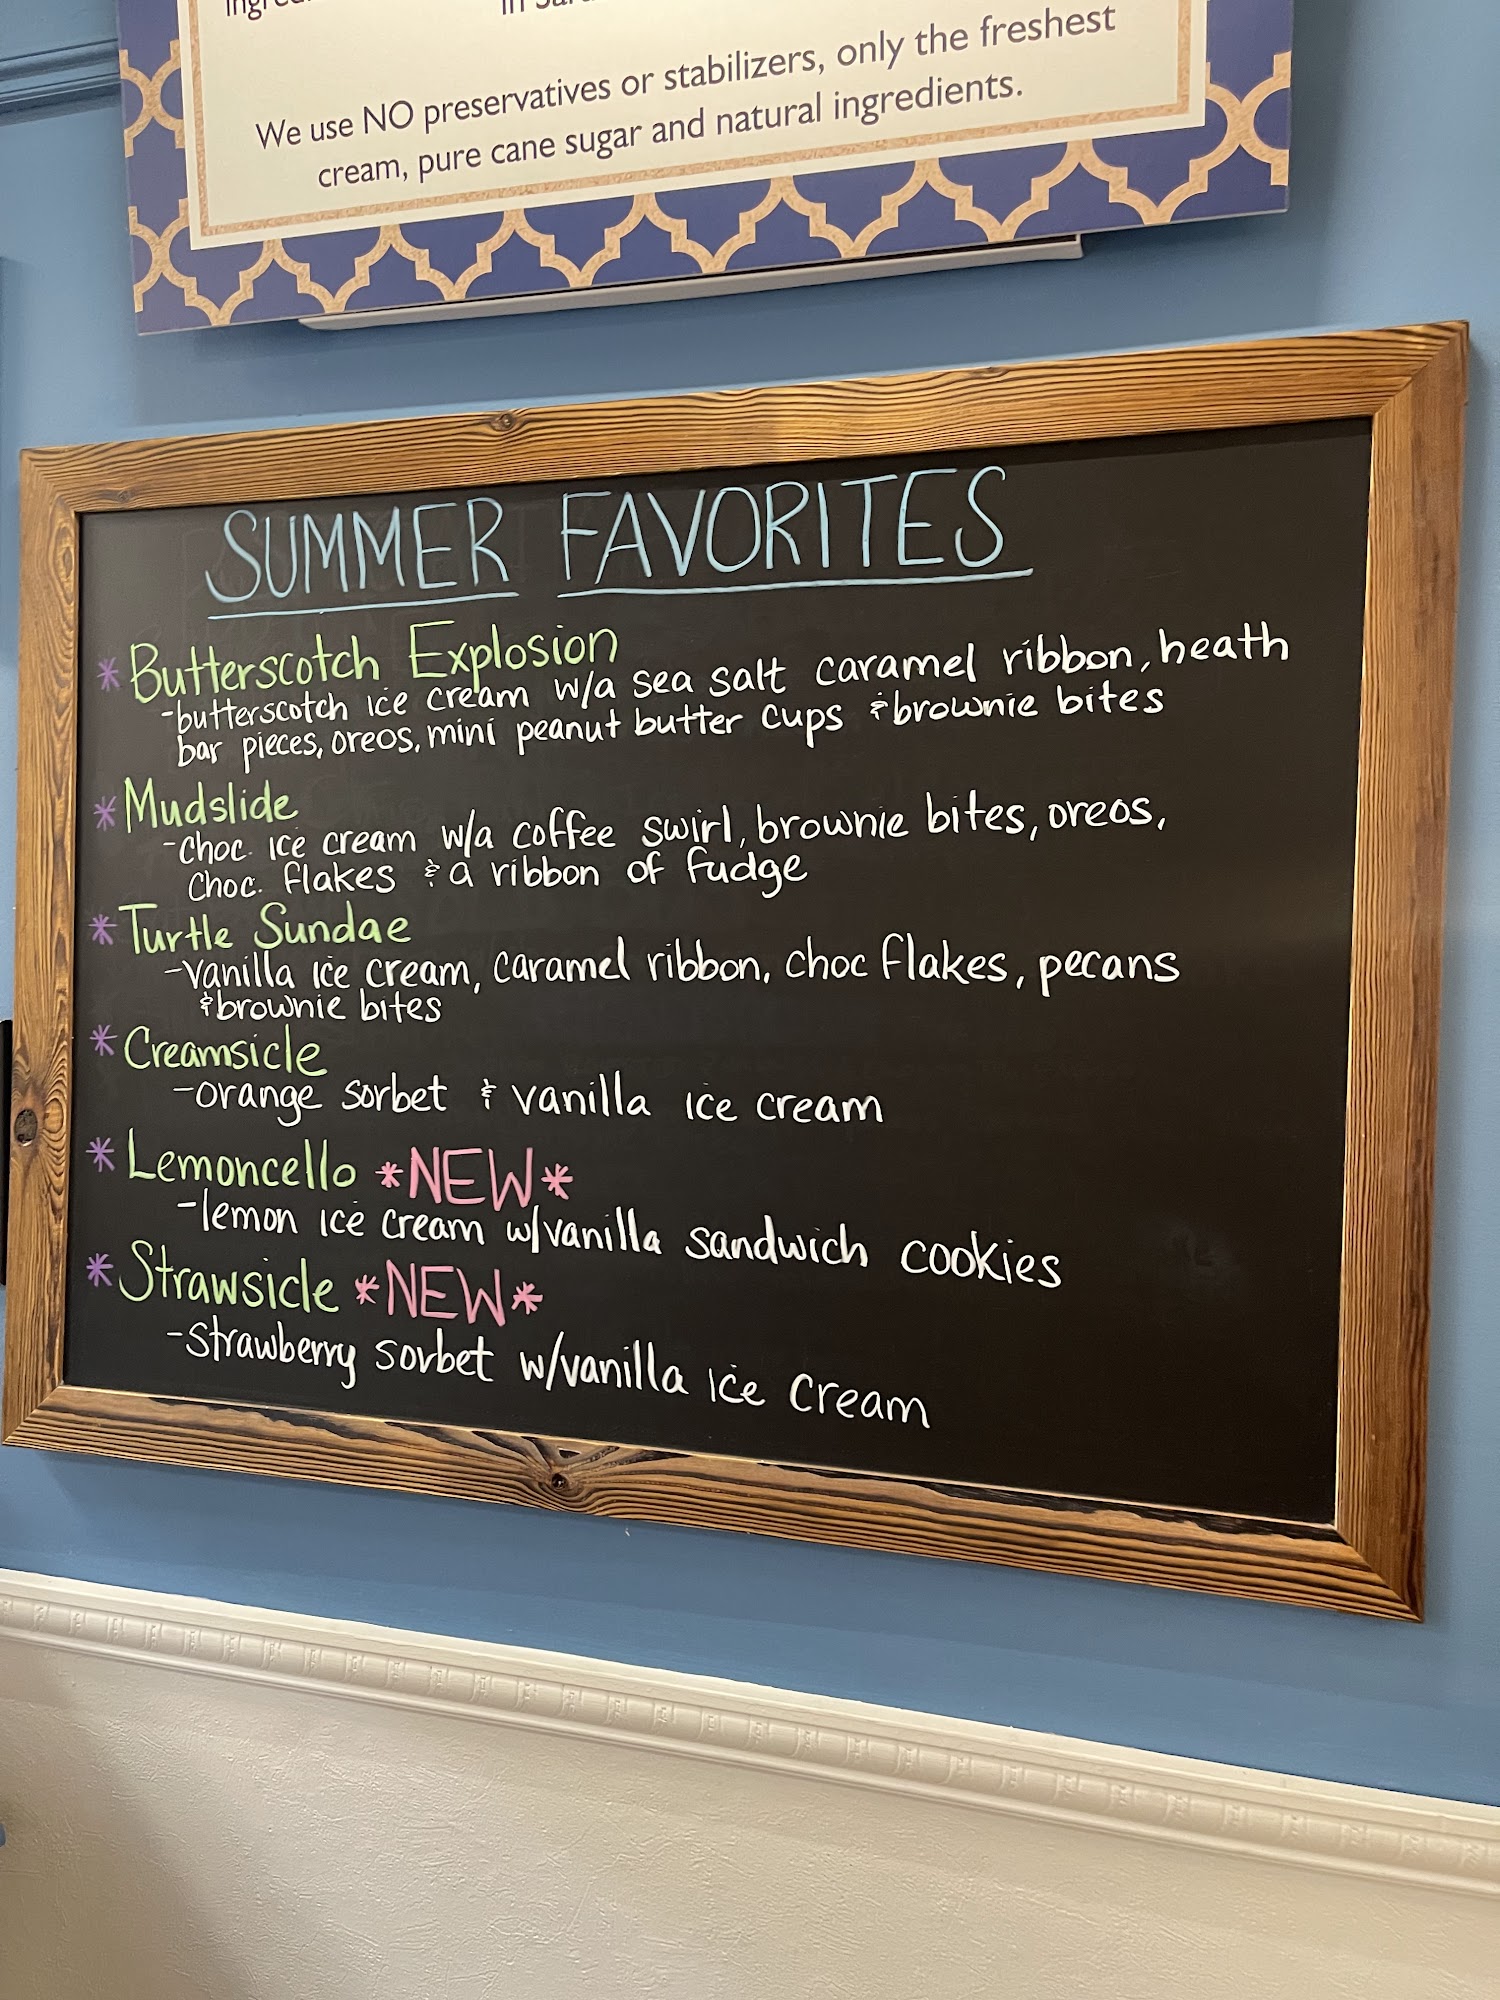 We use NO preservatives or stabilizers, only the freshest
cream, pure cane sugar and natural ingredients.
SUMMER FAVORITES
* Butterscotch Explosion
-butterscotch ice cream w/a sea salt caramel ribbon, heath
bar pieces, oreos, mini peanut butter cups & brownie bites
* Mudslide
-choc. ice cream w/a coffee swirl, brownie bites, oreos,
choc. flakes & a ribbon of fudge
* Turtle Sundae
-vanilla ice cream, caramel ribbon, choc flakes, pecans
& brownie bites
* Creamsicle
-orange sorbet & vanilla ice cream
* Lemoncello *NEW*
-lemon ice cream w/vanilla sandwich cookies
* Strawsicle *NEW*
-strawberry sorbet w/vanilla ice cream